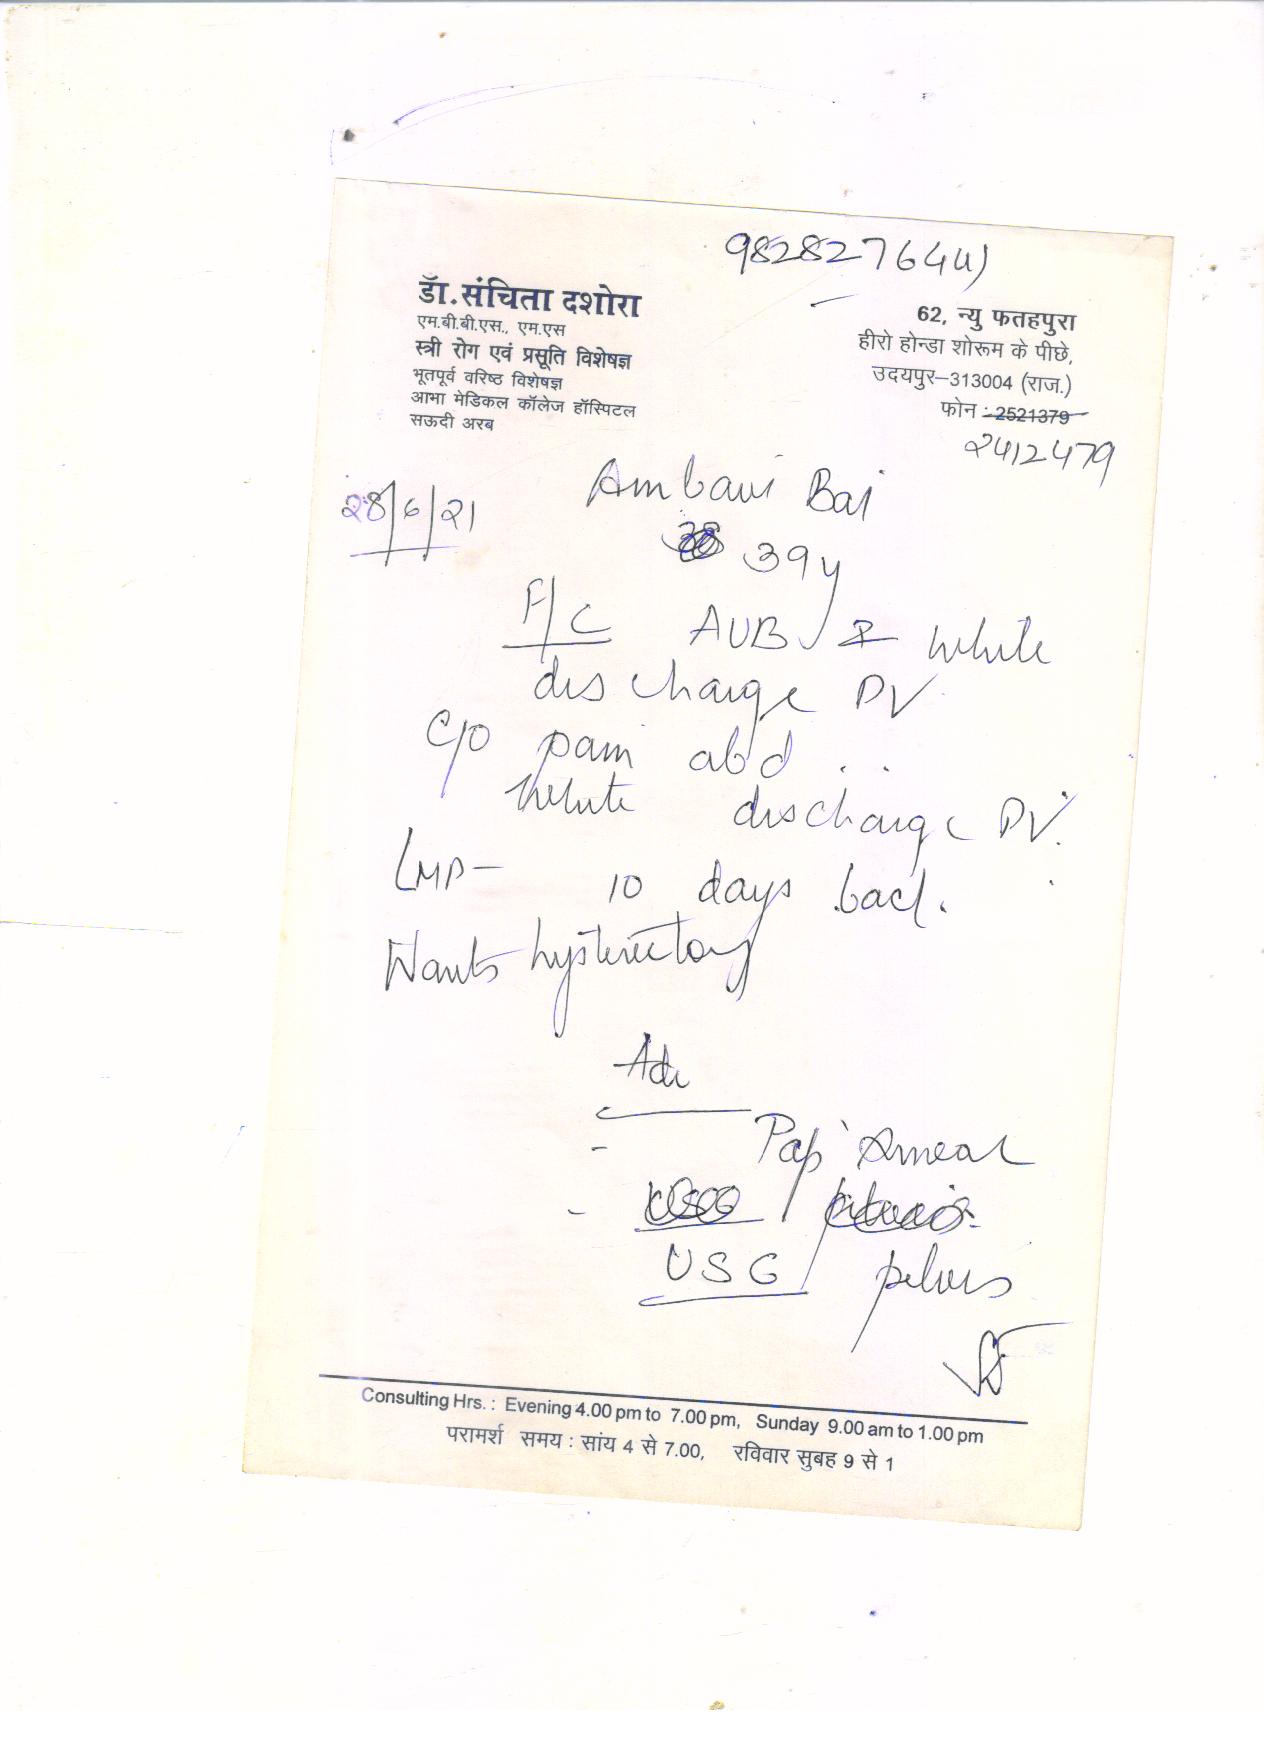 9828276441
डॉ.संचिता दशोरा
एम.बी.बी.एस., एम.एस
स्त्री रोग एवं प्रसूति विशेषज्ञ
भूतपूर्व वरिष्ठ विशेषज्ञ
आभा मेडिकल कॉलेज हॉस्पिटल
सऊदी अरब
62, न्यु फतहपुरा
हीरो होन्डा शोरूम के पीछे,
उदयपुर–313004 (राज.)
फोन : 2521379
2412479
28/6/21
Ambavi Bai
39y
F/C AUB & White
discharge PV
C/O pain abd . .
White discharge PV.
LMP – 10 days back.
Wants hysterectomy
Adv
- Pap Smear
-
USG / pelvis
Consulting Hrs. : Evening 4.00 pm to 7.00 pm, Sunday 9.00 am to 1.00 pm
परामर्श समय : सांय 4 से 7.00, रविवार सुबह 9 से 1